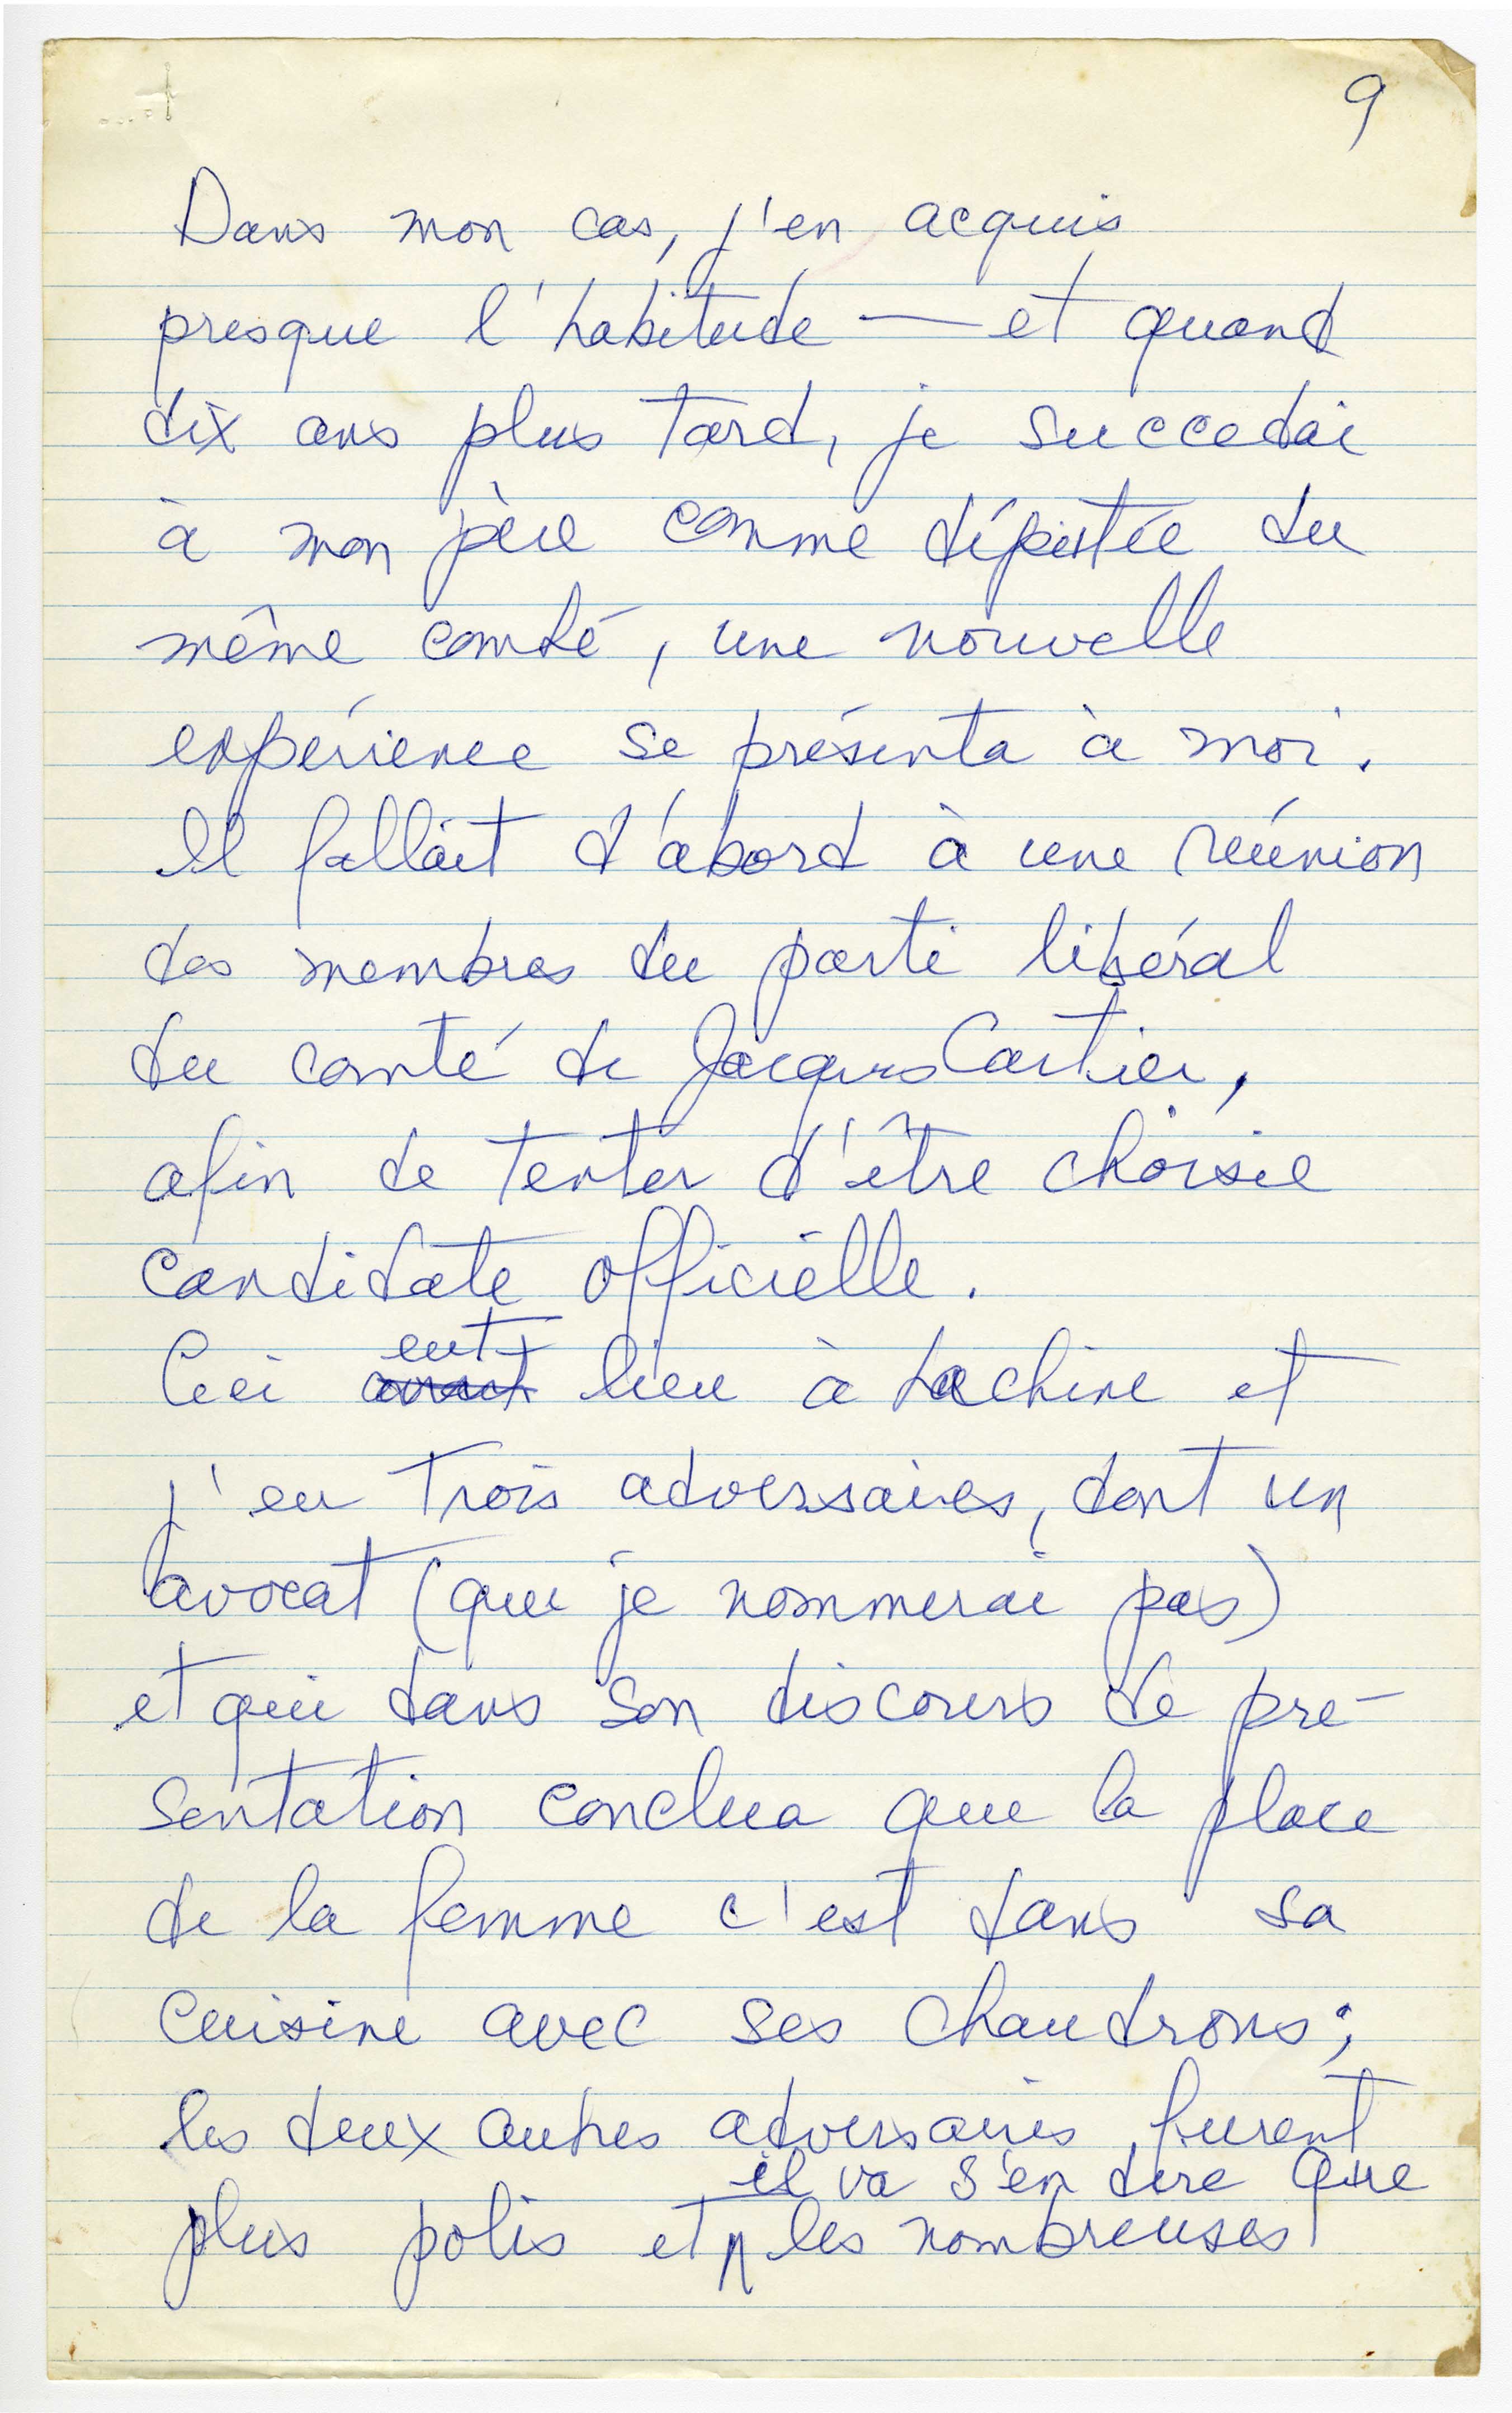 9
Dans mon cas, j'en acquis
presque l'habitude — et quand
dix ans plus tard, je succedai
à mon père comme députée du
même comté, une nouvelle
expérience se présenta à moi.
Il fallait d'abord à une réunion
des membres du parti libéral
du comté de Jacques Cartier,
afin de tenter d'être choisie
candidate officielle.
eut
Ceci lieu à Lachine et
j'eu trois adversaires, dont un
avocat (que je nommerai pas)
et qui dans son discours de pré-
sentation conclua que la place
de la femme c'est dans sa
cuisine avec ses chaudrons;
les deux autres adversaires furent
il va s'en dire que
plus polis et les nombreuses